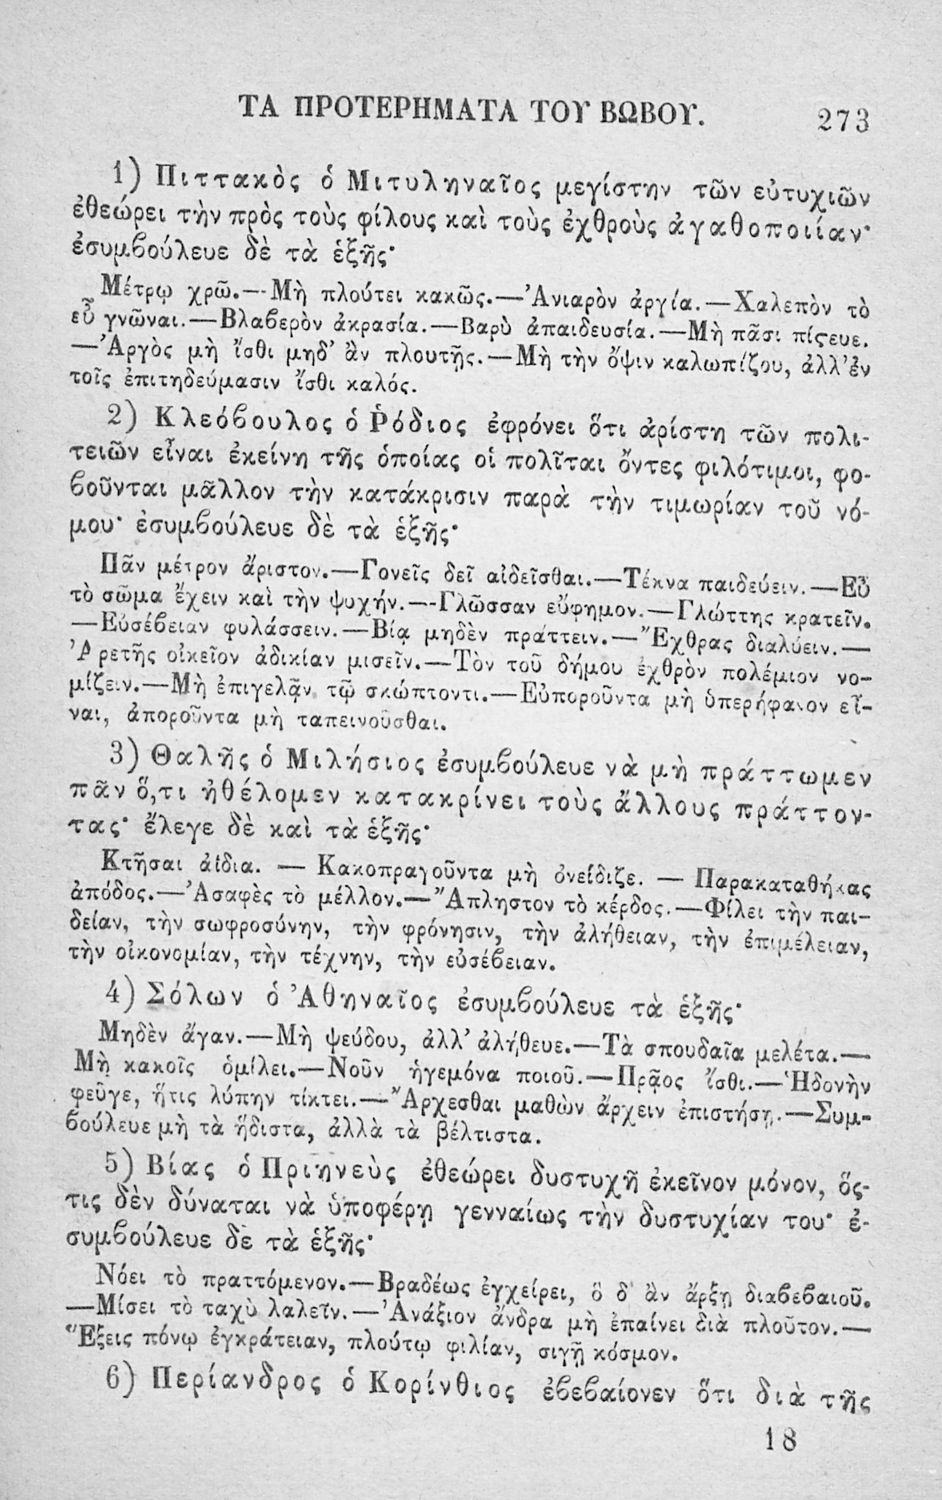 ΤΑ ΠΡΟΤΕΡΗΜΑΤΑ ΤΟΥ ΒΩΒΟΥ.
273
1) Πιττακὸς ὁ Μιτυληναῖος μεγίστην τῶν εὐτυχιῶν
ἐθεώρει τὴν πρὸς τοὺς φίλους καὶ τοὺς ἐχθροὺς ἀγαθοποιίαν·
ἐσυμϐούλευε δὲ τὰ ἑξῆς·
Μέτρῳ χρῶ.—Μὴ πλούτει κακῶς.—Ἀνιαρὸν ἀργία.—Χαλεπὸν τὸ
εὖ γνῶναι.—Βλαϐερὸν ἀκρασία.—Βαρὺ ἀπαιδευσία.—Μὴ πᾶσι πίϛευε.
—Ἀργὸς μὴ ἴσθι μηδ' ἂν πλουτῇς.—Μὴ τὴν ὄψιν καλωπίζου, ἀλλ' ἐν
τοῖς ἐπιτηδεύμασιν ἴσθι καλός.
2) Κλεόϐουλος ὁ Ῥόδιος ἐφρόνει ὅτι ἀρίστη τῶν πολι-
τειῶν εἶναι ἐκείνη τῆς ὁποίας οἱ πολῖται ὄντες φιλότιμοι, φο-
ϐοῦνται μᾶλλον τὴν κατάκρισιν παρὰ τὴν τιμωρίαν τοῦ νό-
μου· ἐσυμϐούλευε δὲ τὰ ἑξῆς·
Πᾶν μέτρον ἄριστον.—Γονεῖς δεῖ αἰδεῖσθαι.—Τέκνα παιδεύειν.—Εὖ
τὸ σῶμα ἔχειν καὶ τὴν ψυχήν.—Γλῶσσαν εὔφημον.—Γλώττης κρατεῖν.
—Εὐσέϐειαν φυλάσσειν.—Βίᾳ μηδὲν πράττειν.—Ἔχθρας διαλύειν.—
Ἀρετῆς οἰκεῖον ἀδικίαν μισεῖν.—Τὸν τοῦ δήμου ἐχθρὸν πολέμιον νο-
μίζειν.—Μὴ ἐπιγελᾷν τῷ σκώπτοντι.—Εὐποροῦντα μὴ ὑπερήφανον εἶ-
ναι, ἀποροῦντα μὴ ταπεινοῦσθαι.
3) Θαλῆς ὁ Μιλήσιος ἐσυμϐούλευε νὰ μὴ πράττωμεν
πᾶν ὅ,τι ἠθέλομεν κατακρίνει τοὺς ἄλλους πράττον-
τας· ἔλεγε δὲ καὶ τὰ ἑξῆς·
Κτῆσαι ἀΐδια. — Κακοπραγοῦντα μὴ ὀνείδιζε. — Παρακαταθήκας
ἀπόδος.—Ἀσαφὲς τὸ μέλλον.—Ἄπληστον τὸ κέρδος.—Φίλει τὴν παι-
δείαν, τὴν σωφροσύνην, τὴν φρόνησιν, τὴν ἀλήθειαν, τὴν ἐπιμέλειαν,
τὴν οἰκονομίαν, τὴν τέχνην, τὴν εὐσέϐειαν.
4) Σόλων ὁ Ἀθηναῖος ἐσυμϐούλευε τὰ ἑξῆς·
Μηδὲν ἄγαν.—Μὴ ψεύδου, ἀλλ' ἀλήθευε.—Τὰ σπουδαῖα μελέτα.—
Μὴ κακοῖς ὁμίλει.—Νοῦν ἡγεμόνα ποιοῦ.—Πρᾷος ἴσθι.—Ἡδονὴν
φεῦγε, ἥτις λύπην τίκτει.—Ἄρχεσθαι μαθὼν ἄρχειν ἐπιστήσῃ.—Συμ-
ϐούλευε μὴ τὰ ἥδιστα, ἀλλὰ τὰ βέλτιστα.
5) Βίας ὁ Πριηνεὺς ἐθεώρει δυστυχῆ ἐκεῖνον μόνον, ὅς-
τις δὲν δύναται νὰ ὑποφέρῃ γενναίως τὴν δυστυχίαν του· ἐ-
συμϐούλευε δὲ τὰ ἑξῆς·
Νόει τὸ πραττόμενον.—Βραδέως ἐγχείρει, ὃ δ' ἂν ἄρξῃ διαϐεϐαιοῦ.
—Μίσει τὸ ταχὺ λαλεῖν.—Ἀνάξιον ἄνδρα μὴ ἐπαίνει διὰ πλοῦτον.—
Ἕξεις πόνῳ ἐγκράτειαν, πλούτῳ φιλίαν, σιγῇ κόσμον.
6) Περίανδρος ὁ Κορίνθιος ἐϐεϐαίονεν ὅτι διὰ τῆς
18